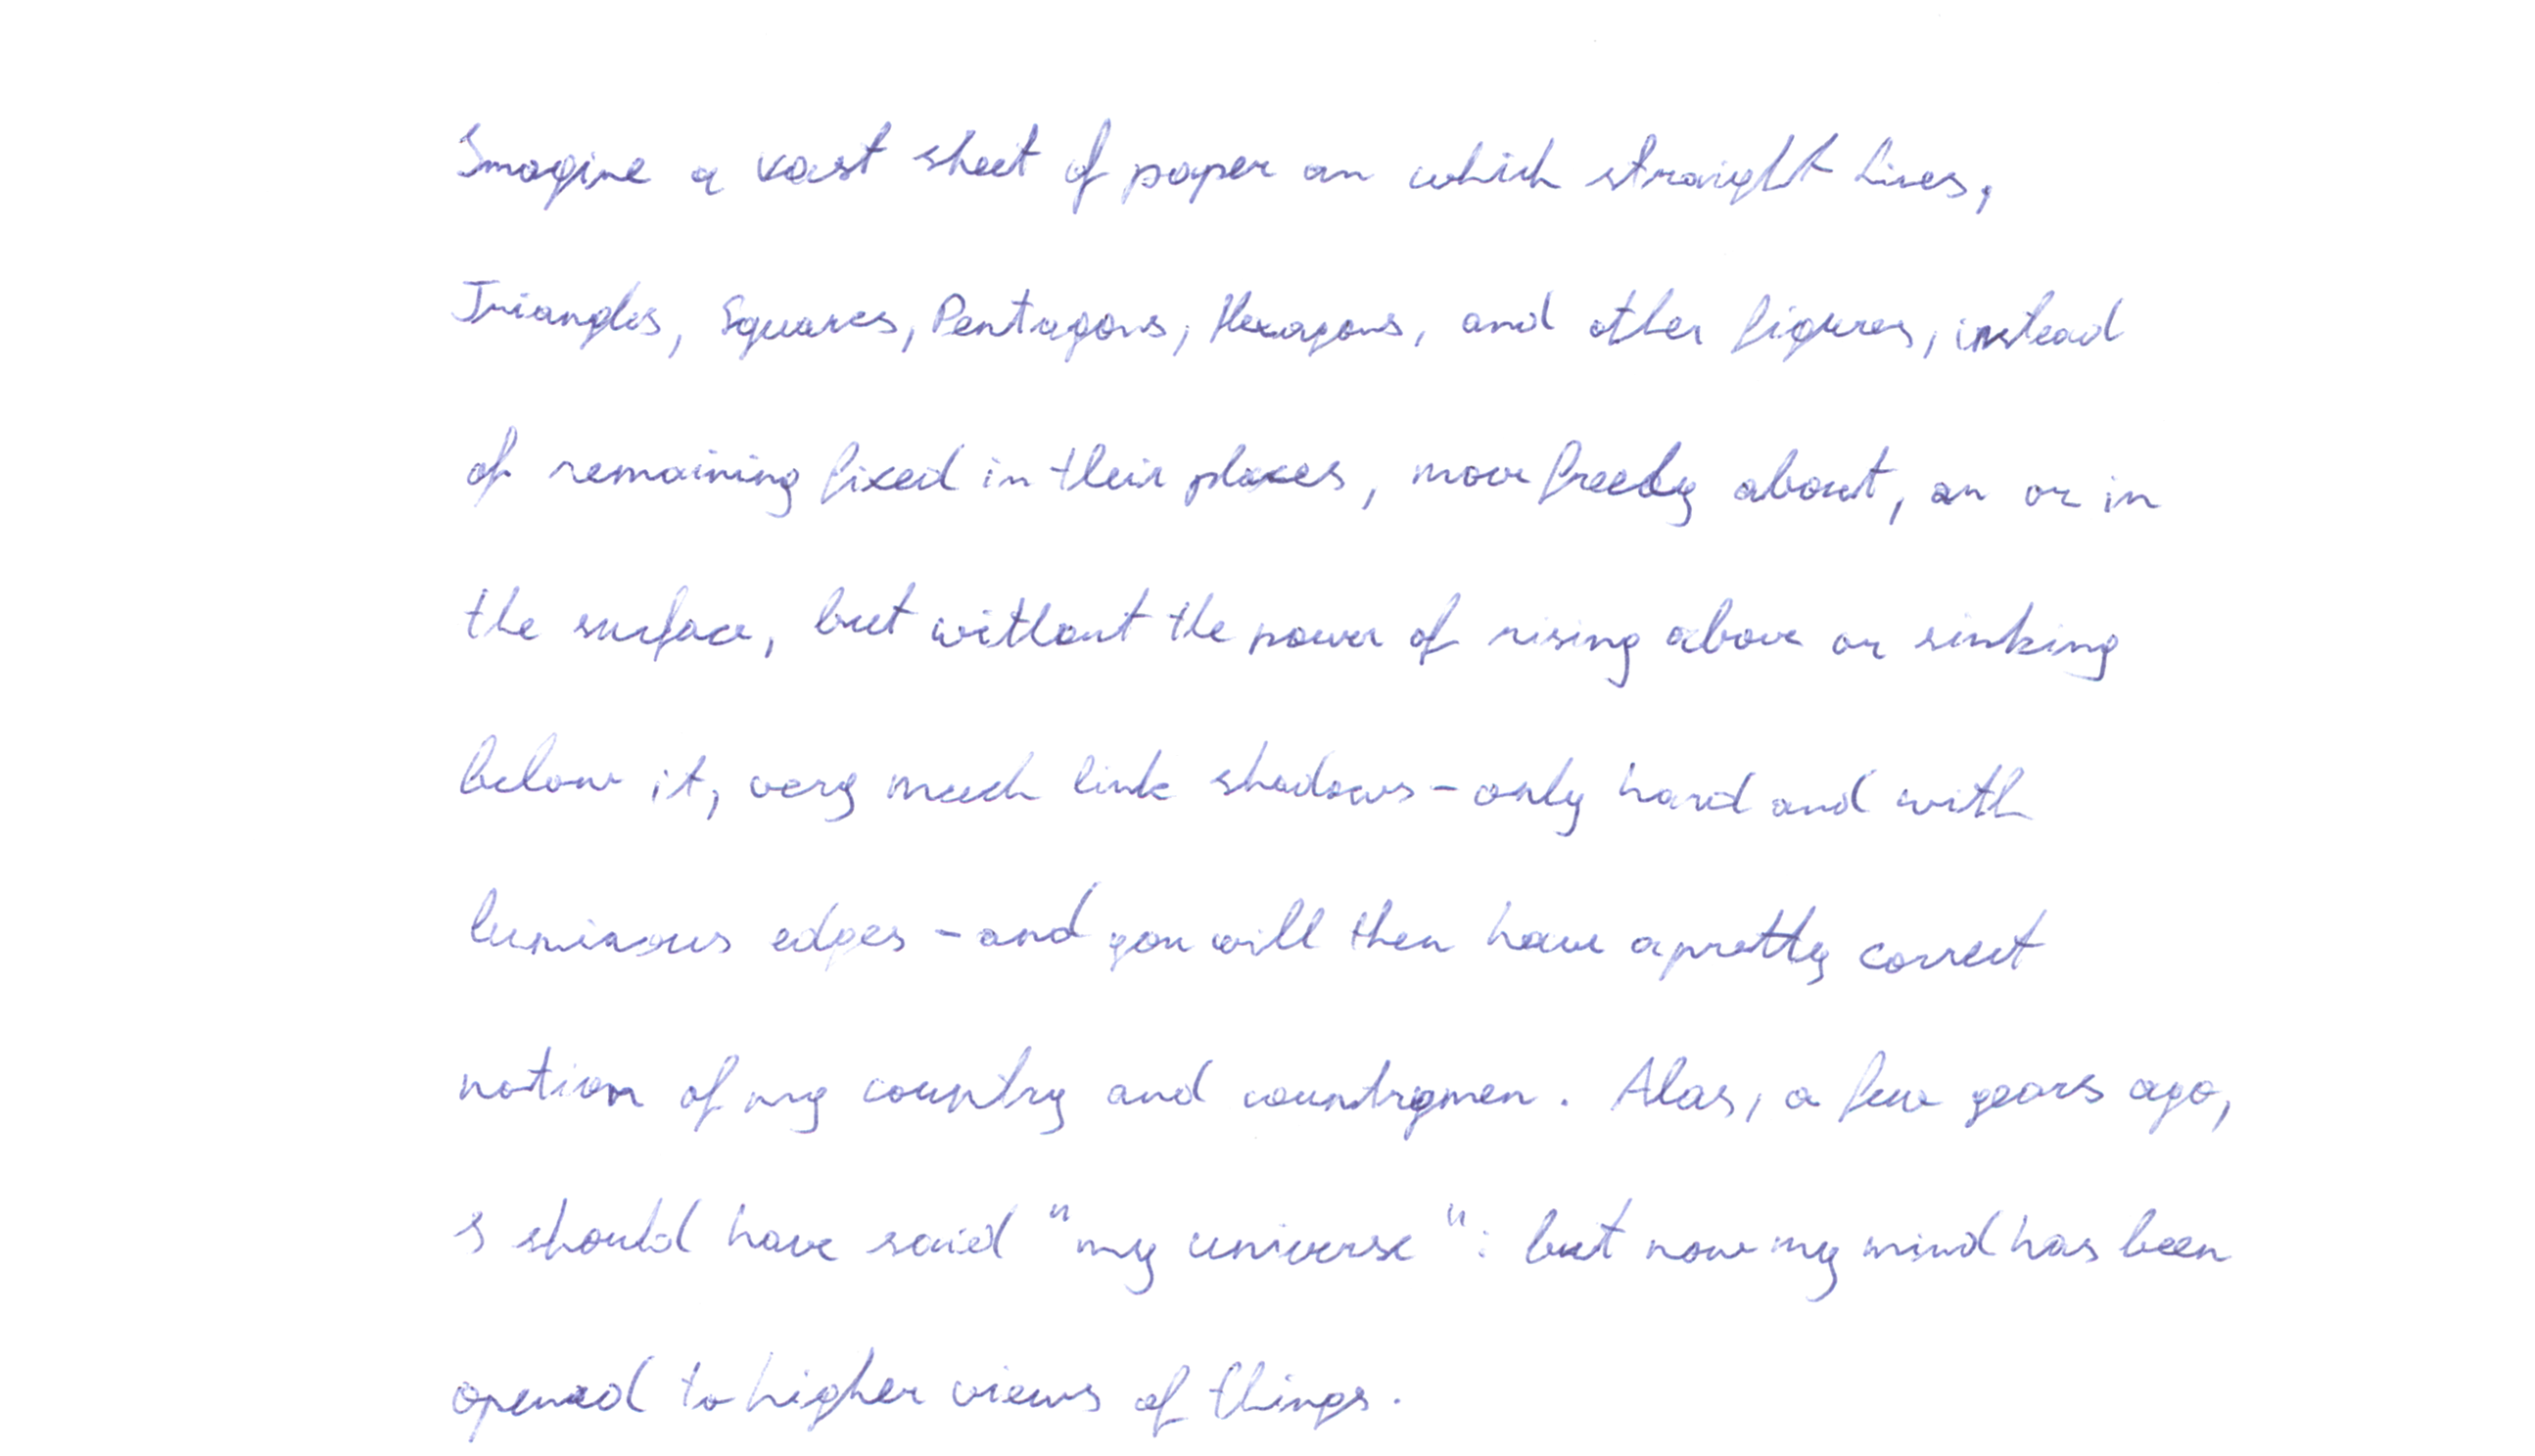 Imagine a vast sheet of paper on which straight Lines,
Triangles, Squares, Pentagons, Hexagons, and other figures, instead
of remaining fixed in their places, move freely about, on or in
the surface, but without the power of rising above or sinking
below it, very much link shadows - only hard and with
luminous edges - and you will then have a pretty correct
notion of my country and countrymen. Alas, a few years ago,
I should have said "my universe": but now my mind has been
opened to higher views of things.